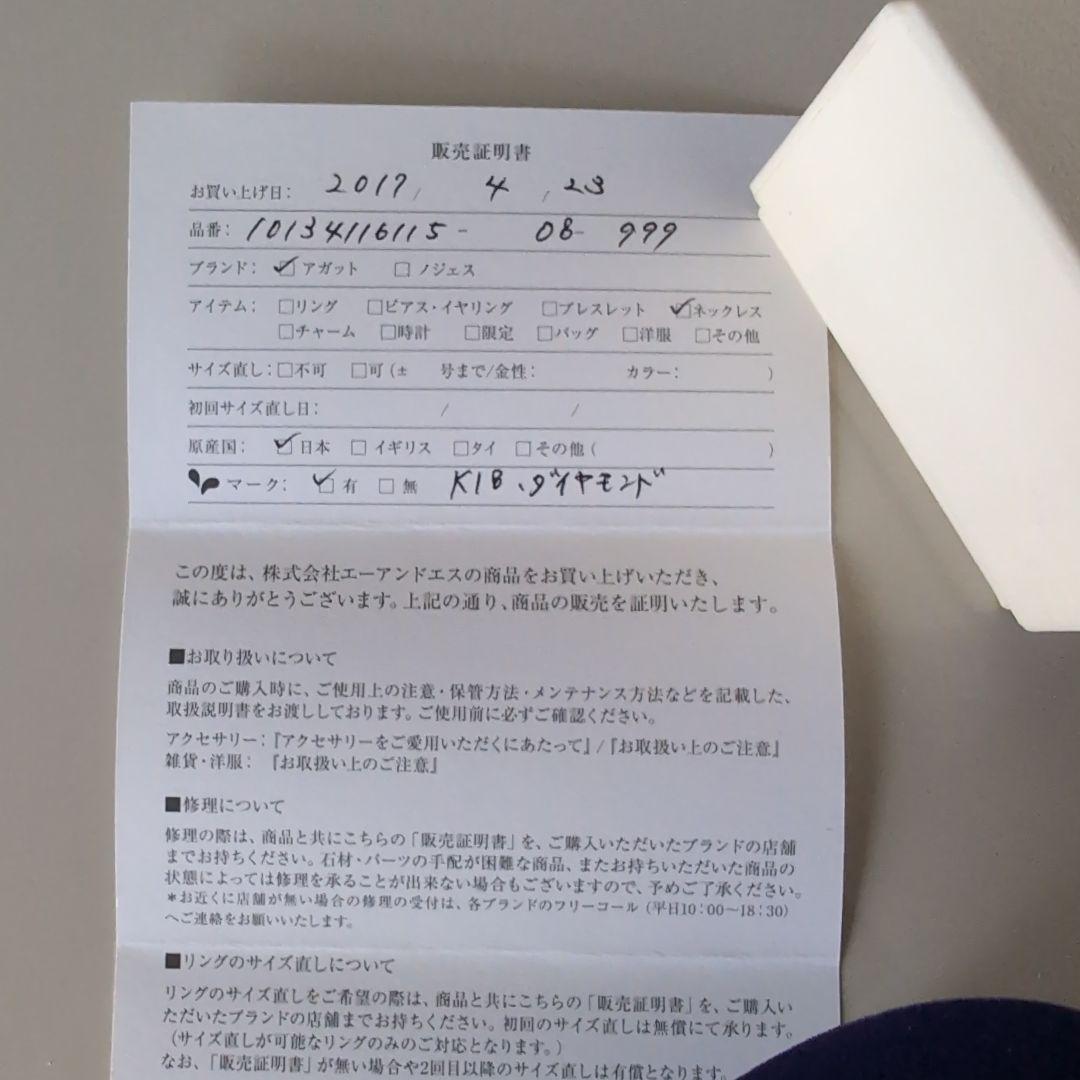 販売証明書
お買い上げ日: 2017, 4, 23
品番: 10134116115- 08- 999
ブランド: ☑アガット □ノジェス
アイテム: □リング □ピアス・イヤリング □ブレスレット ☑ネックレス
□チャーム □時計 □限定 □バッグ □洋服 □その他
サイズ直し: □不可 □可(± 号まで/金性: カラー: )
初回サイズ直し日: / /
原産国: ☑日本 □イギリス □タイ □その他( )
マーク: ☑有 □無 K18、ダイヤモンド
この度は、株式会社エーアンドエスの商品をお買い上げいただき、
誠にありがとうございます。上記の通り、商品の販売を証明いたします。
■お取り扱いについて
商品のご購入時に、ご使用上の注意・保管方法・メンテナンス方法などを記載した、
取扱説明書をお渡ししております。ご使用前に必ずご確認ください。
アクセサリー:『アクセサリーをご愛用いただくにあたって』/『お取扱い上のご注意』
雑貨・洋服: 『お取扱い上のご注意』
■修理について
修理の際は、商品と共にこちらの「販売証明書」を、ご購入いただいたブランドの店舗
までお持ちください。石材・パーツの手配が困難な商品、またお持ちいただいた商品の
状態によっては修理を承ることが出来ない場合もございますので、予めご了承ください。
*お近くに店舗が無い場合の修理の受付は、各ブランドのフリーコール(平日10:00〜18:30)
へご連絡をお願いいたします。
■リングのサイズ直しについて
リングのサイズ直しをご希望の際は、商品と共にこちらの「販売証明書」を、ご購入い
ただいたブランドの店舗までお持ちください。初回のサイズ直しは無償にて承ります。
(サイズ直しが可能なリングのみのご対応となります。)
なお、「販売証明書」が無い場合や2回目以降のサイズ直しは有償となります。